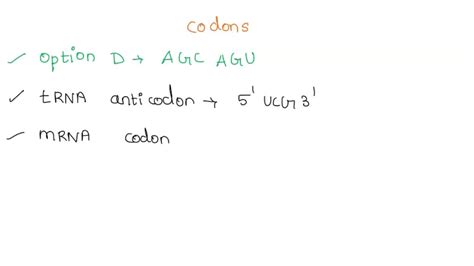 codons
✓ option D → AGC AGU
✓ tRNA anticodon → 5' UCG 3'
✓ mRNA codon